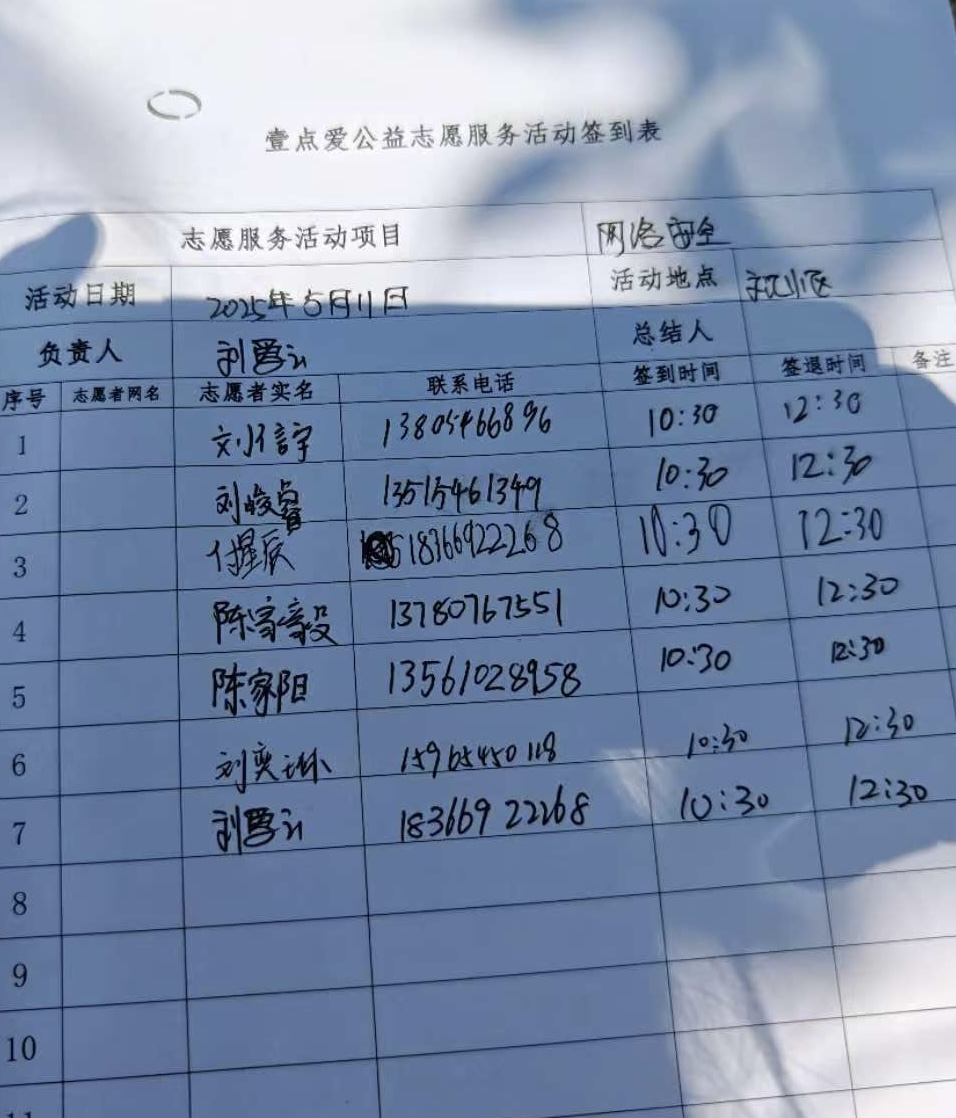 壹点爱公益志愿服务活动签到表
志愿服务活动项目 网络安全
活动日期 2025年5月11日 活动地点 小区
负责人 刘 总结人
序号 志愿者网名 志愿者实名 联系电话 签到时间 签退时间 备注
1 刘 宇 13805466896 10:30 12:30
2 刘峻睿 13515461349 10:30 12:30
3 付星辰 18366922268 10:30 12:30
4 陈家毅 13780767551 10:30 12:30
5 陈家阳 13561028958 10:30 12:30
6 刘奕 15965450118 10:30 12:30
7 刘 18366922268 10:30 12:30
8
9
10